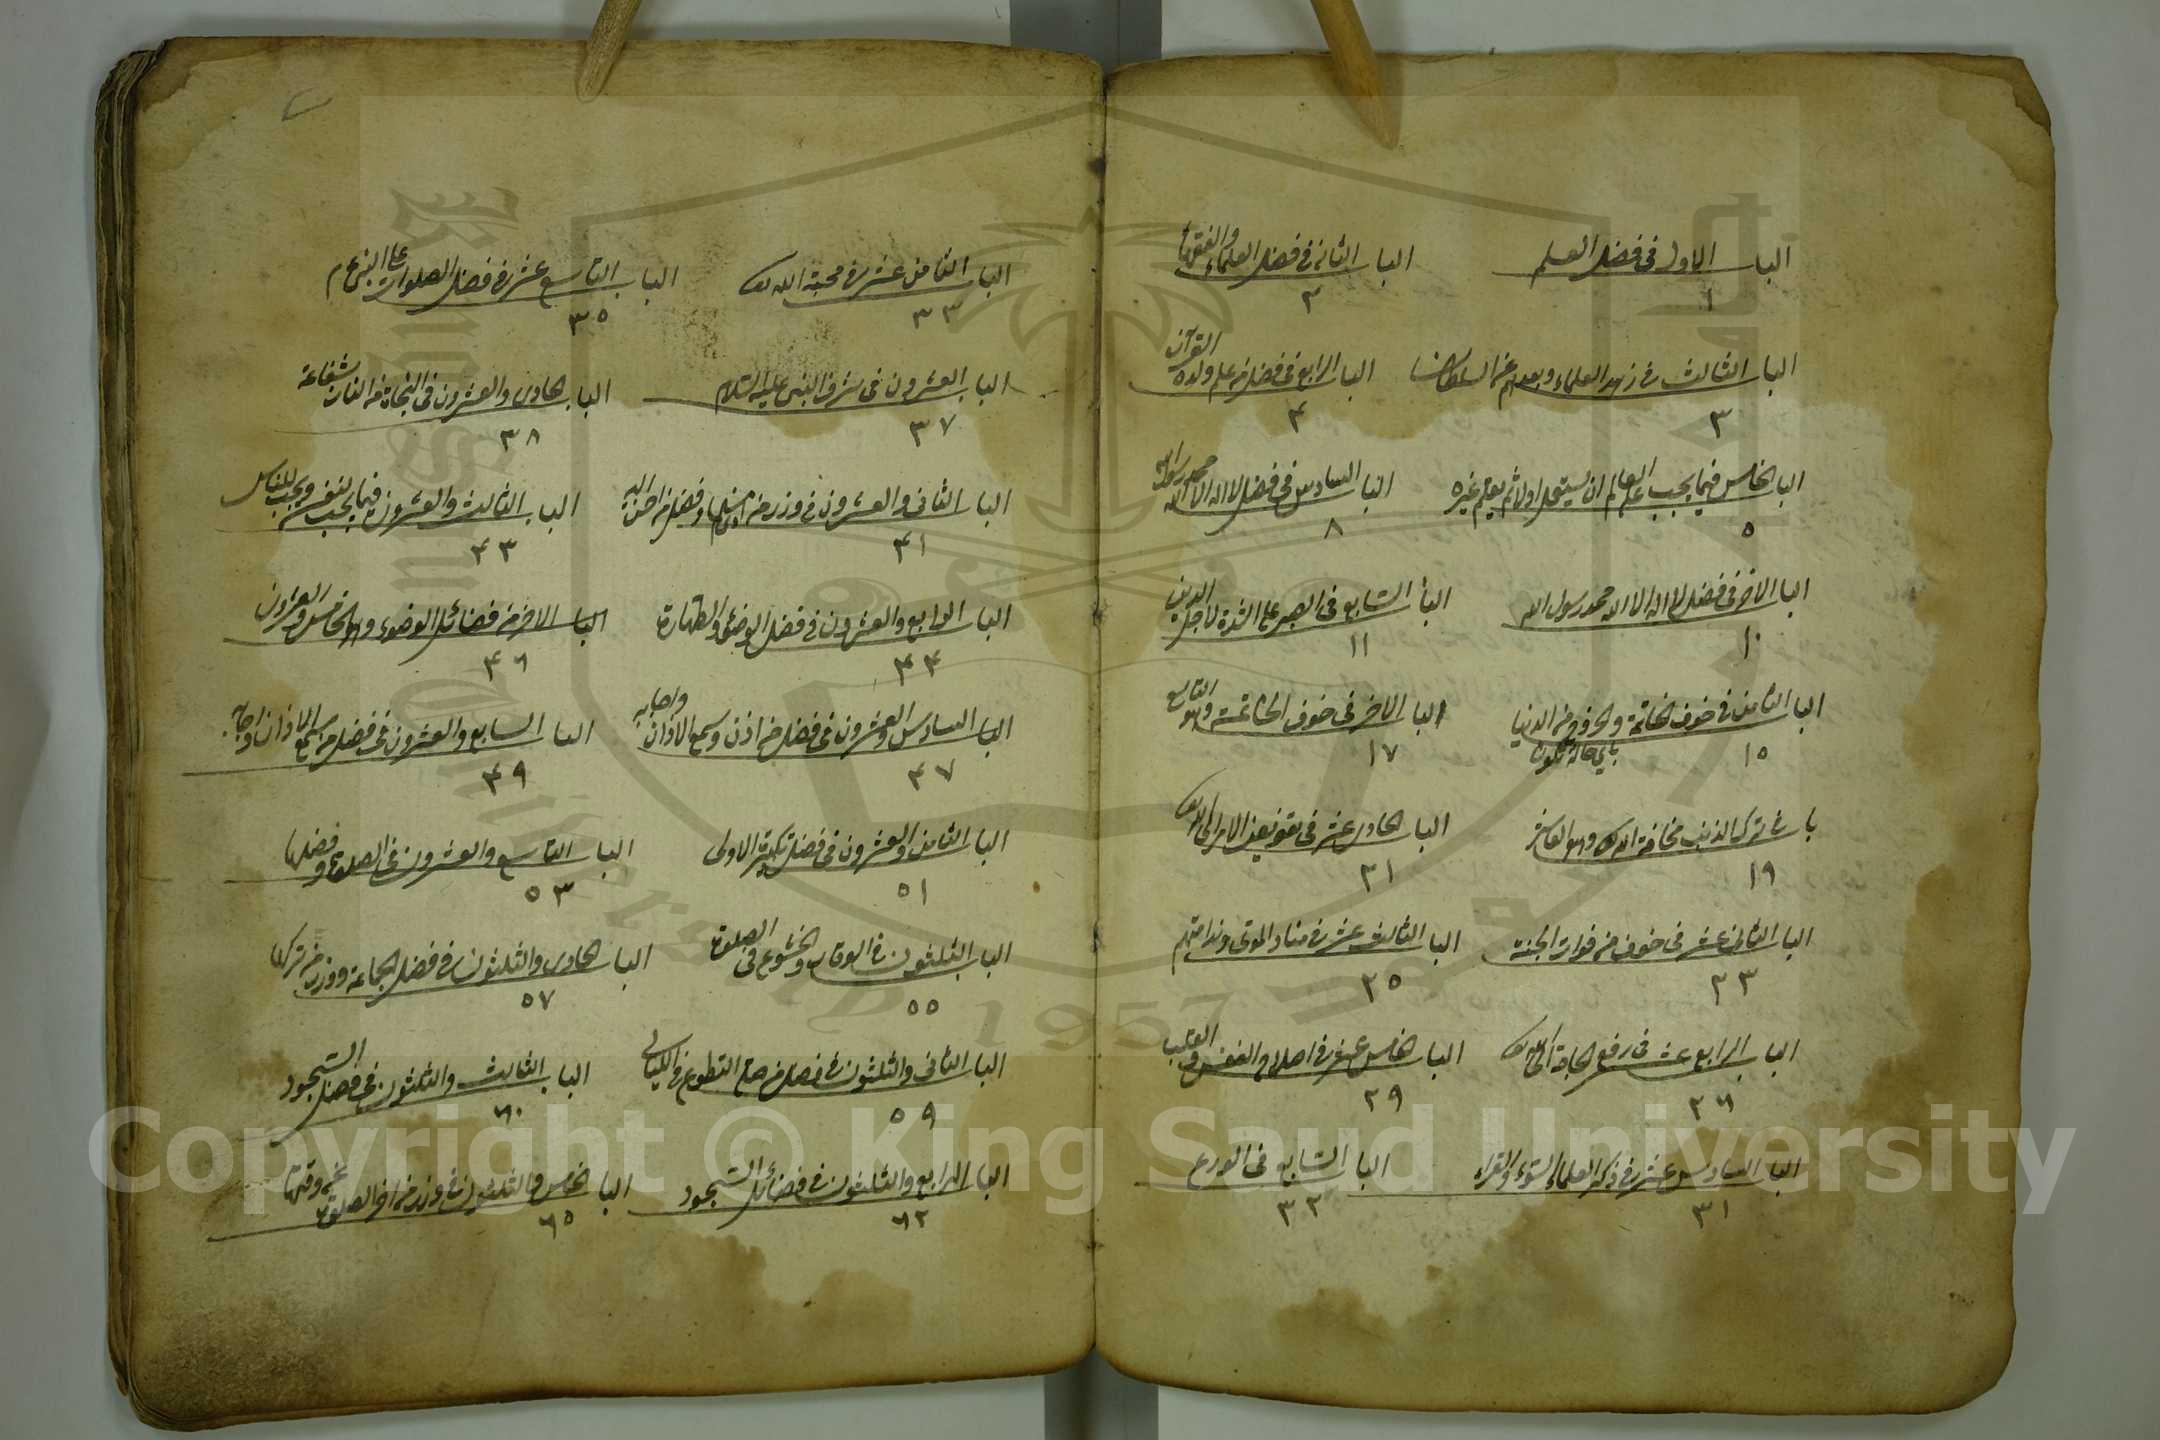 الباب الاول فى فضل العلم
١
الباب الثانى فى فضل العلماء والفقها
٢
الباب الثالث فى زهد العلماء وبعدهم عن السلطان
٣
الباب الرابع فى فضل من علم ولده القرآن
۴
الباب الخامس فيما يجب على العالم ان يستعمل اولا ثم يعلم غيره
٥
الباب السادس فى فضل لا اله الا الله محمد رسول الله
٨
الباب الاخر فى فضل لا اله الا الله محمد رسول الله
١٠
الباب السابع فى الصبر على الشدة لاجل الدين
١١
الباب الثامن فى خوف الخاتمة والخروج من الدنيا باي حالة تكون
١٥
الباب الاخر فى خوف الخاتمة وهو التاسع
١٧
باب فى ترك الذنب مخافة الله تع وهو العاشر
١٩
الباب الحادى عشر فى تفويض الامر الى الله تع
٢١
الباب الثانى عشر فى خوف من فوات الجنة
٢٣
الباب الثالث عشر فى مناد الموتى وندامتهم
٢٥
الباب الرابع عشر فى رفع الحاجة الى الله تع
٢٦
الباب الخامس عشر فى اصلاح النفس و القلب
٢٩
الباب السادس عشر فى ذكر العلماء السوء والقراء
٣١
الباب السابع فى الورع
٣٢
الباب الثامن عشر فى محبة الله تع
٣٣
الباب التاسع عشر فى فضل الصلوات على النبى عم
٣٥
الباب العشرون فى شرف النبى عليه السلام
٣٧
الباب الحادى والعشرون فى النجاة من النار بشفاعة
٣٨
الباب الثانى والعشرون فى وزر من مسلما وفضل من احسن اليه
۴١
الباب الثالث والعشرون فيما يجب لنفسه ويجب للناس
۴٣
الباب الرابع والعشرون فى فضل الوضوء والطهارة
۴۴
الباب الاخر من فضائل الوضوء وهو الخامس والعشرون
۴٦
الباب السادس والعشرون فى فضل من اذن وسمع الاذان واجابه
۴٧
الباب السابع والعشرون فى فضل من سمع الاذان واجابه
۴٩
الباب الثامن والعشرون فى فضل تكبيرة الاولى
٥١
الباب التاسع والعشرون فى الصلوة وفضلها
٥٣
الباب الثلثون فى الوقار والخشوع فى الصلوة
٥٥
الباب الحادى والثلثون فى فضل الجماعة ووزر من تركها
٥٧
الباب الثانى والثلثون فى فضل من صلى التطوع فى الليالى
٥٩
الباب الثالث والثلثون فى فضل السجود
٦٠
الباب الرابع والثلثون فى فضائل السجود
٦٢
الباب الخامس والثلثون فى وزر من اخر الصلوة عن وقتها
٦٥
King Saud University
1957
Copyright © King Saud University